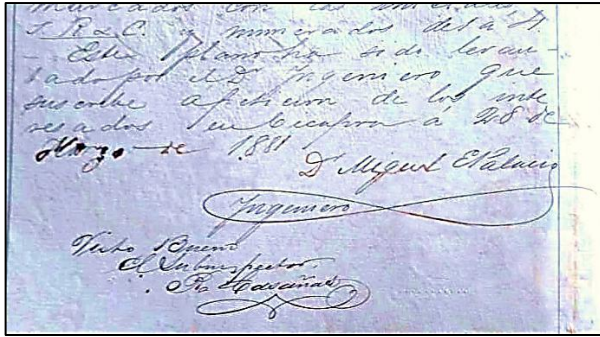 marcados con las iniciales
J. R. & C. y numerados del á
- Este plano ha sido levan-
tado por el D. Ingeniero que
suscribe á peticion de los inte
resados en á 28 de
Marzo de 1881
D. Miguel E Palacio
Ingeniero
Visto Bueno
El Subinspector,